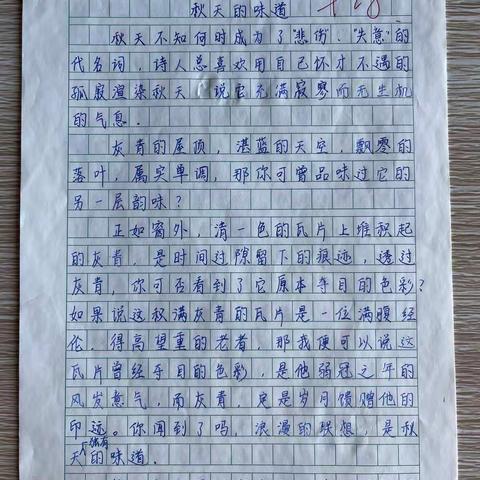 秋天的味道
秋天不知何时成为了"悲伤"、"失意"的
代名词,诗人总喜欢用自己怀才不遇的
孤寂渲染秋天,说它充满寂寥而无生机
的气息.
灰青的屋顶,湛蓝的天空,飘零的
落叶,属实单调,那你可曾品味过它的
另一层韵味?
正如窗外,清一色的瓦片上堆积起
的灰青,是时间过隙留下的痕迹,透过
灰青,你可否看到了它原本夺目的色彩?
如果说这权满灰青的瓦片是一位满腹经
伦,得高望重的老者,那我便可以说这
瓦片曾经夺目的色彩,是他弱冠之年的
风发意气,而灰青,更是岁月馈赠他的
印迹。你闻到了吗,浪漫的联想,是秋
天独有的味道.